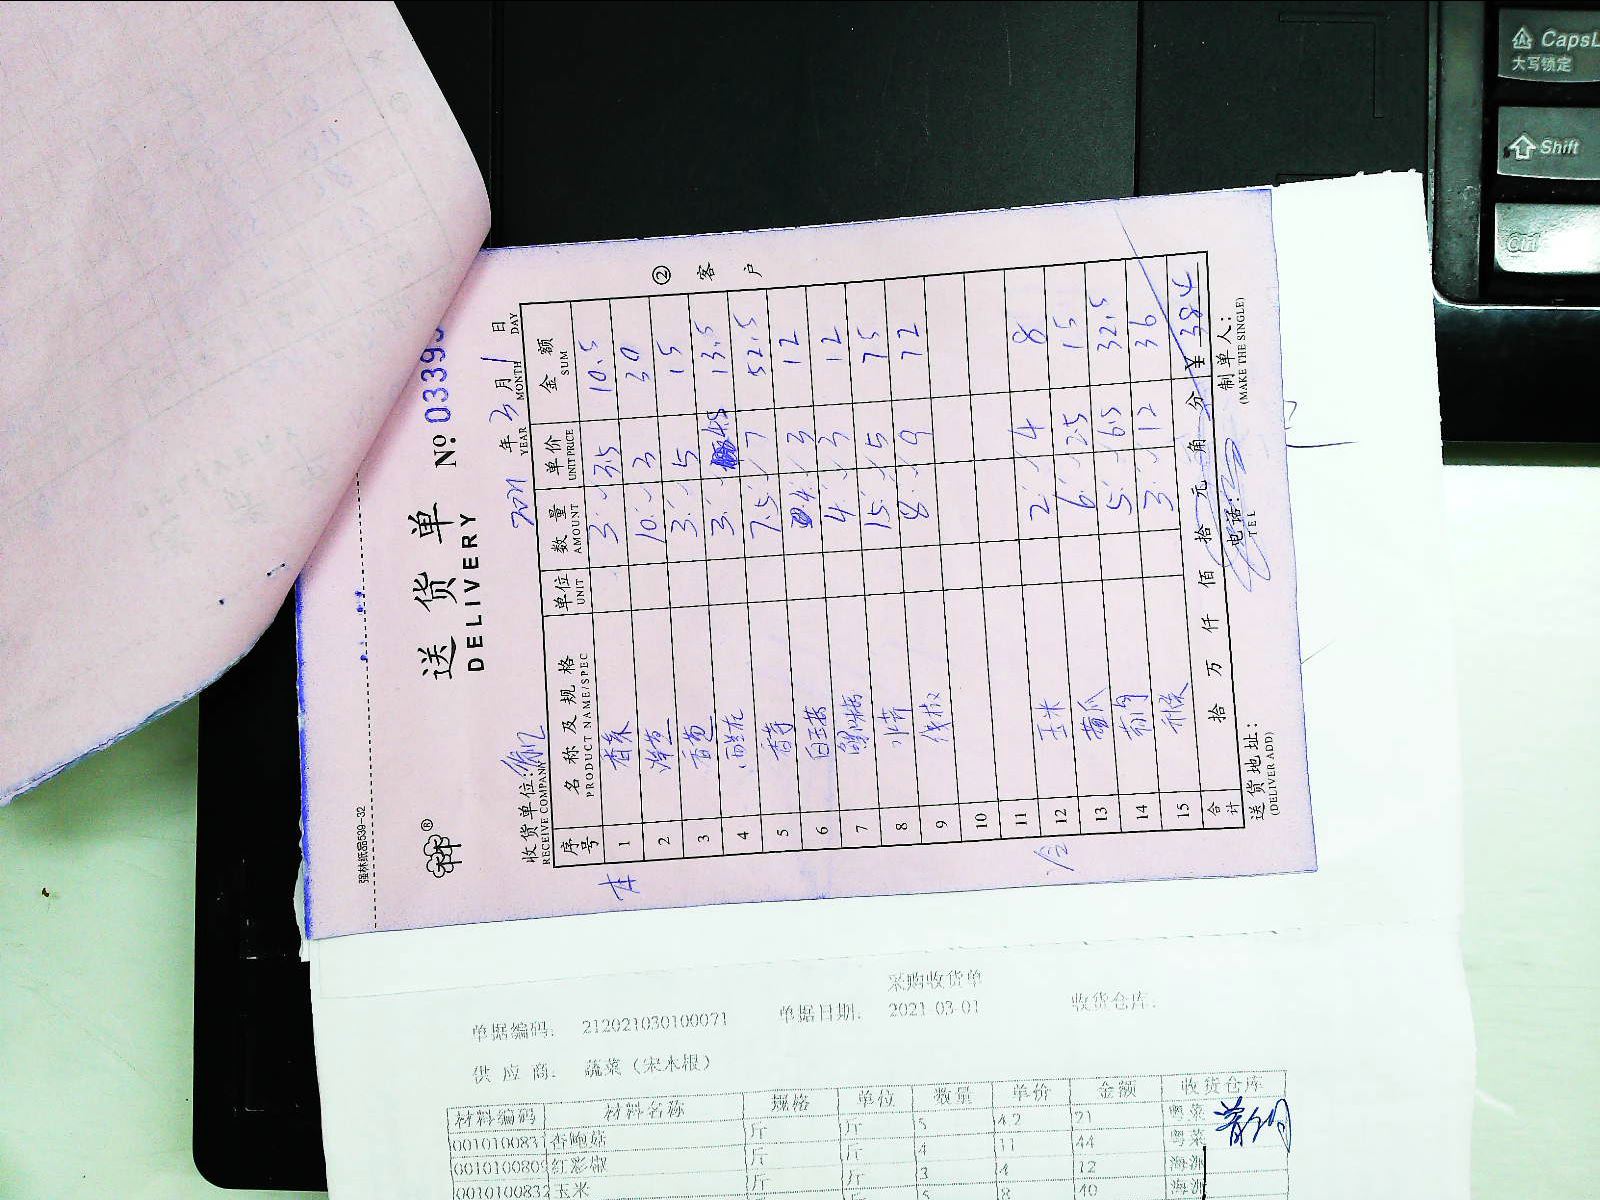 强林纸品539-32
送货单 № 03393
DELIVERY
2021 年 3 月 1 日
YEAR MONTH DAY
收货单位:
RECEIVE COMPANY
② 客户
序号 名称及规格 单位 数量 单价 金额
PRODUCT NAME/SPEC UNIT AMOUNT UNIT PRICE SUM
1 香菜 3 3.5 10.5
2 10 3 30
3 香葱 3 5 15
4 西兰花 3 4.5 13.5
5 7.5 7 52.5
6 白玉菇 4 3 12
7 4 3 12
8 15 5 75
9 线椒 8 9 72
10
11
12 玉米 2 4 8
13 黄瓜 6 2.5 15
14 5 6.5 32.5
15 3 12 36
合计 拾 万 仟 佰 拾 元 角 分 ¥ 384
送货地址: 电话: 制单人:
(DELIVER ADD) TEL (MAKE THE SINGLE)
采购收货单
单据编码: 212021030100071 单据日期: 2021-03-01 收货仓库:
供应商: 蔬菜(宋木根)
材料编码 材料名称 规格 单位 数量 单价 金额 收货仓库
杏鲍菇 斤 斤 5 4.2 21 粤菜
红彩椒 斤 斤 4 11 44 粤菜
玉米 斤 斤 3 4 12
斤 斤 5 8 40
CapsL
大写锁定
Shift
Ctrl